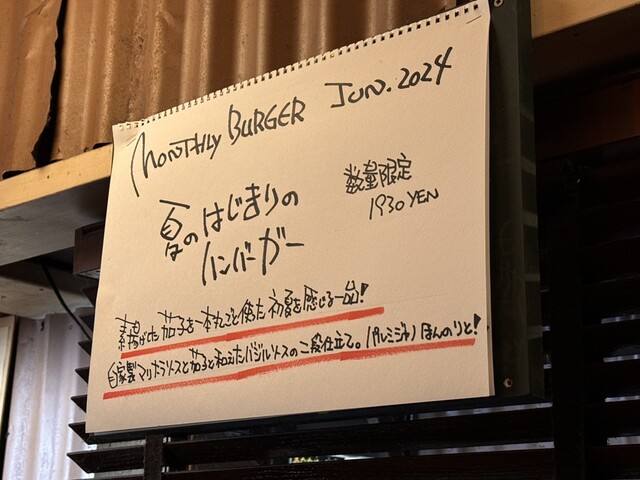 MONTHLY BURGER JUN. 2024
夏のはじまりの
ハンバーガー
数量限定
1930 YEN
素揚げした茄子を一本丸ごと使った初夏を感じる一品!
自家製マリナラソースと茄子と和えたバジルソースの二段仕立て。パルミジャーノほんのりと!